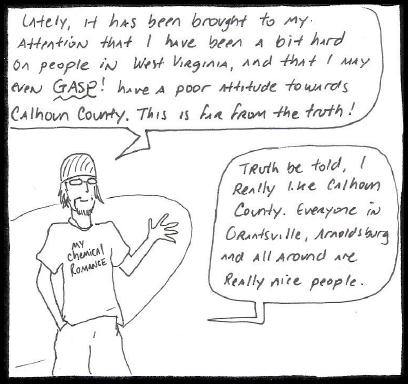 Lately, it has been brought to my
attention that I have been a bit hard
on people in West Virginia, and that I may
even GASP! have a poor attitude towards
Calhoun County. This is far from the truth!
Truth be told, I
really like Calhoun
County. Everyone in
Grantsville, Arnoldsburg
and all around are
really nice people.
My
Chemical
Romance